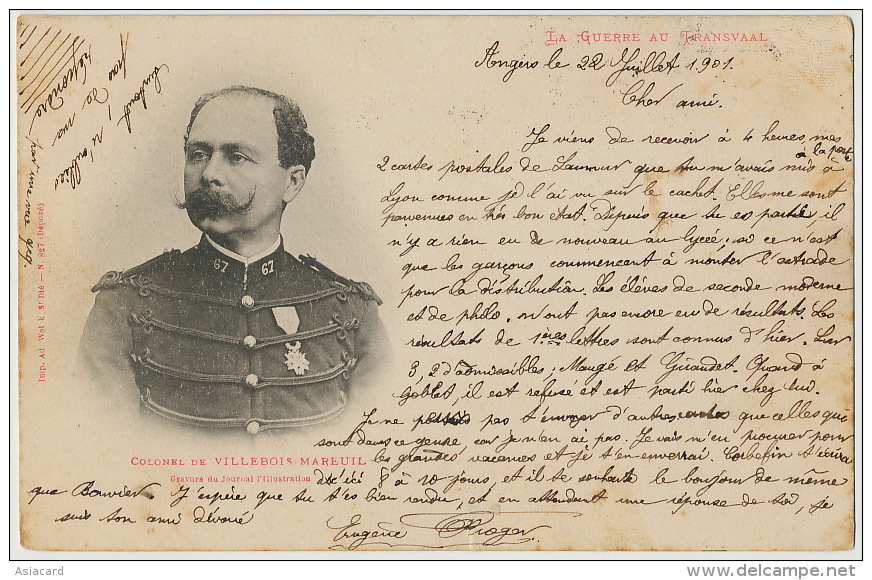 LA GUERRE AU TRANSVAAL
Angers le 22 Juillet 1901.
Cher ami.
Je viens de recevoir à 4 heures, mes
à la poste
2 cartes postales de Saumur que tu m'avais mis à
Lyon comme je l'ai vu sur le cachet. Elles me sont
parvenues en très bon état. Depuis que tu es partie, il
n'y a rien eu de nouveau au lycée; si ce n'est
que les garçons commencent à monter l'estrade
pour la distribution. Les élèves de seconde moderne
et de philo, n'ont pas encore eu de résultats. Les
résultats de 1ères lettres sont connus d'hier. Sur
3, 2 d'admissibles; Maugé et Giraudet. Quand à
Goblet, il est refusé et est parti hier chez lui.
Je ne pas t'envoyer d'autres cartes que celles qui
sont dans ce genre, car je n'en ai pas. Je vais m'en procurer pour
les grandes vacances et je t'en enverrai. t'écrira
d'ici 8 à 10 jours, et il te souhaite le bonjour de même
que Bouvier. J'espère que tu t'es bien rendu, et en attendant une réponse de toi, je
suis ton ami dévoué
Eugène Proger.
Surtout, n'oublies
pas de me
répondre
67 67
COLONEL DE VILLEBOIS-MAREUIL
Gravure du Journal l'Illustration
Imp. Ad. Weick, St Dié — N. 827 (Déposé)
Asiacard
delcampe.net